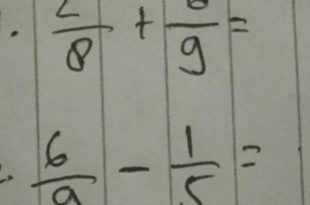 2/8 + 6/9 =
6/9 - 1/5 =